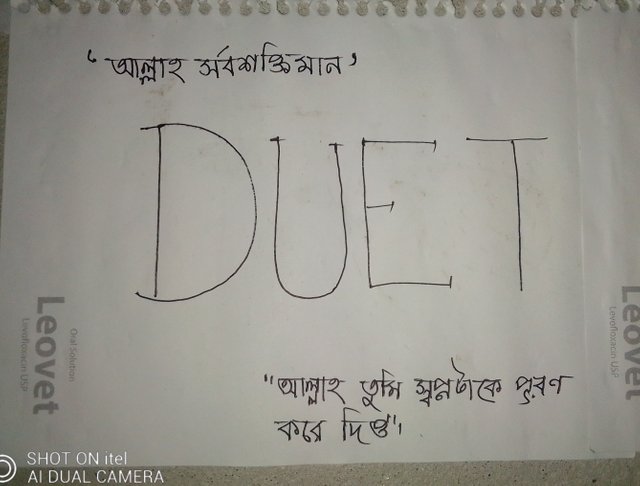 ‘আল্লাহ সর্বশক্তিমান’
DUET
Leovet
Levofloxacin USP
Oral Solution
Leovet
Levofloxacin USP
"আল্লাহ তুমি স্বপ্নটাকে পূরণ
করে দিও"।
SHOT ON itel
AI DUAL CAMERA